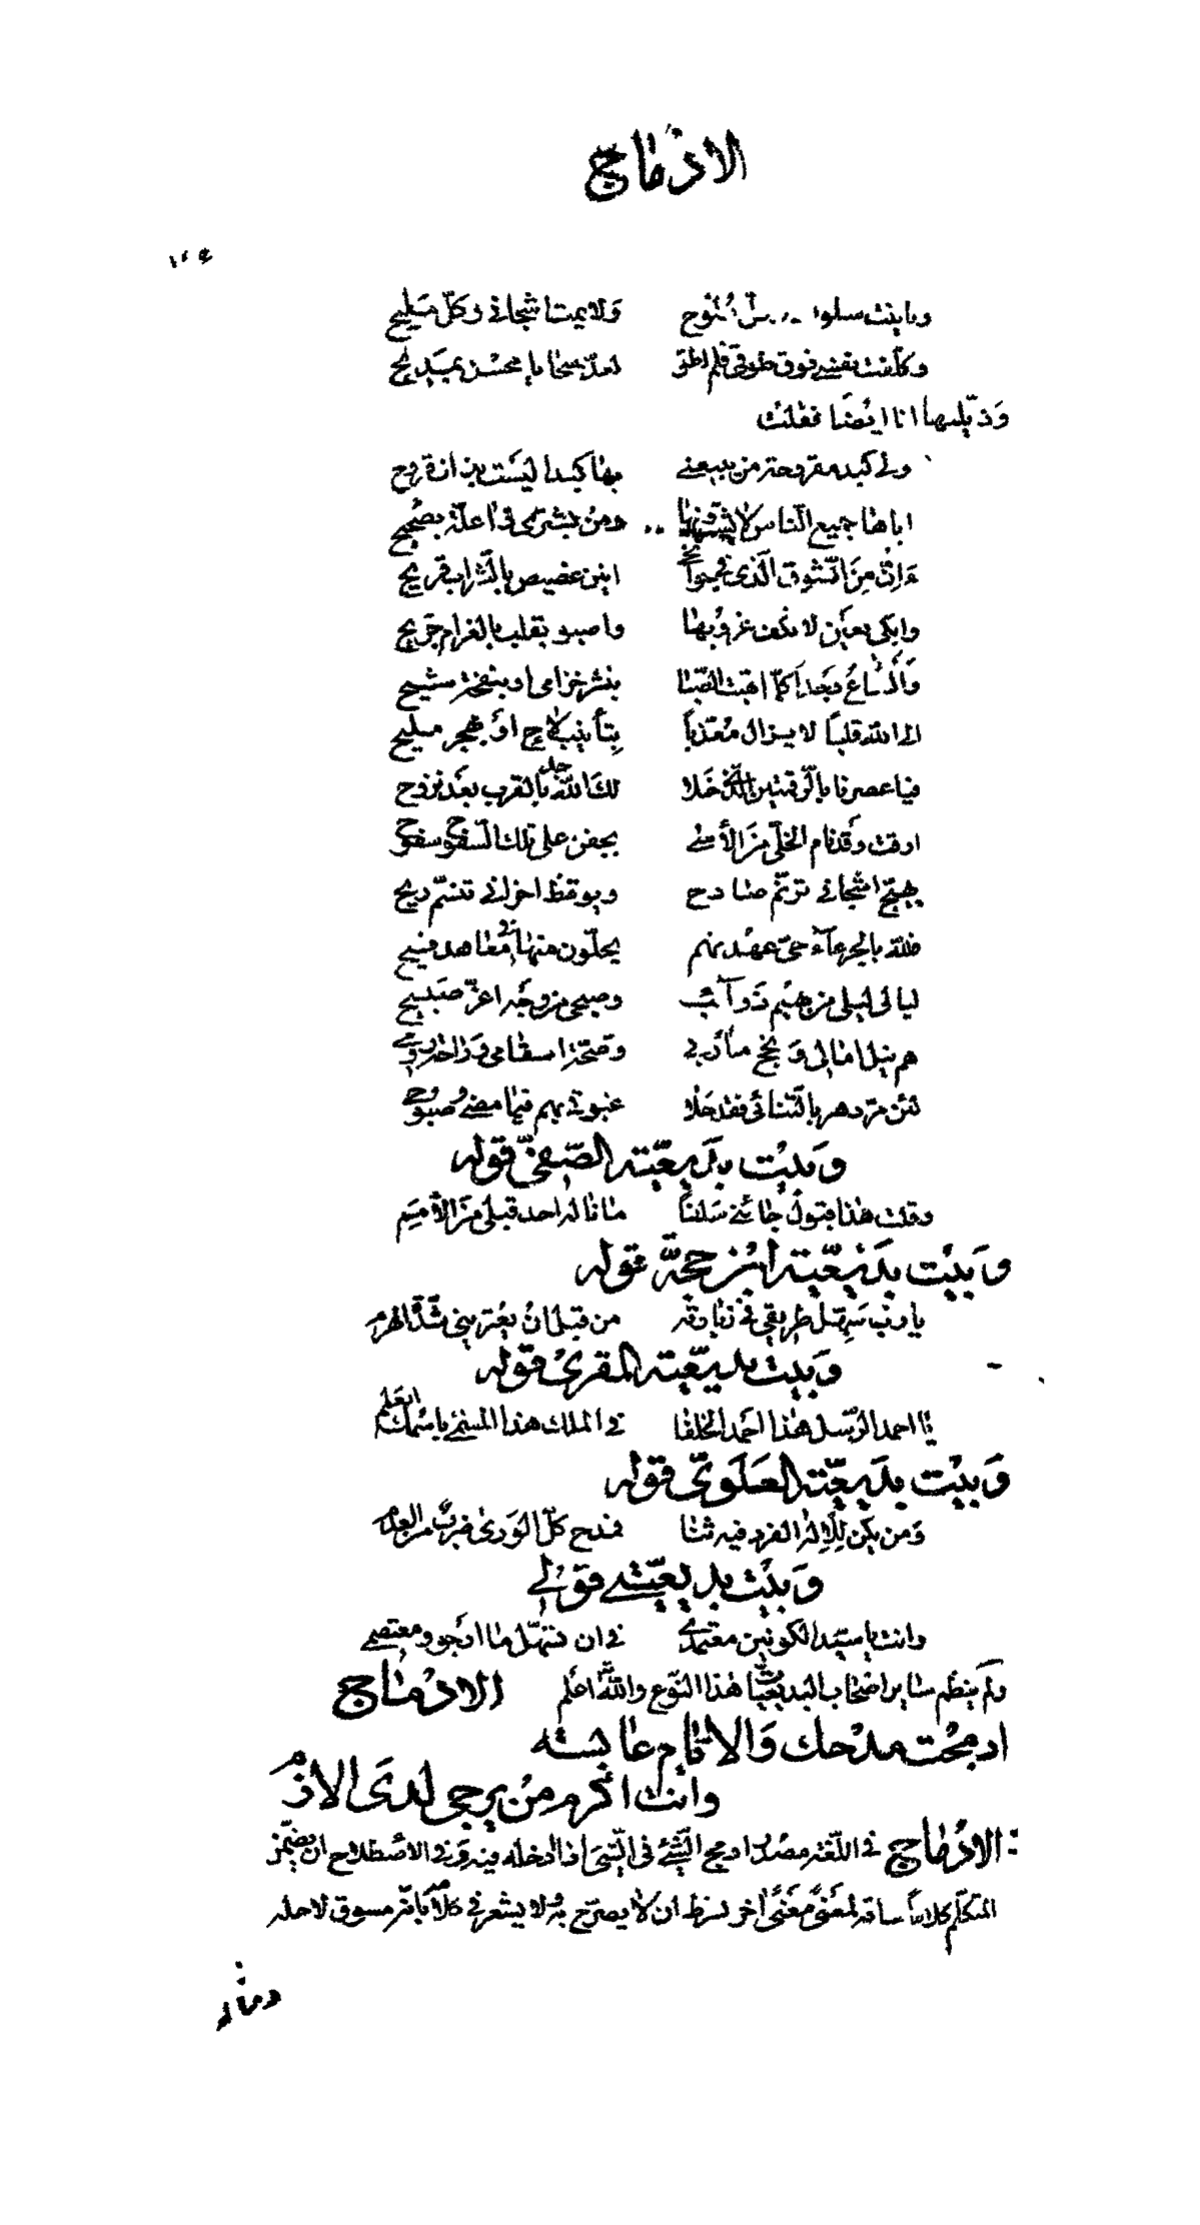 الادماج
وباينت سلوا بي نزوح ولا يمت اشجاني وكل مليح
وكلفت نفسي فوق طوقي فلم اطق
وذيلها انا ايضا فقلت
ولي كبد مقروحة من يبيعني بها كبدا ليست بذات قروح
اباها جميع الناس لا يشترونها ومن يشتري ذا علة بصحيح
وائن من الشوق الذي في جوانحي انين غصيص بالشراب قريح
وابكي بعين لا تكف غروبها واصبو بقلب بالغرام جريح
والتاع وجدا كلما هبت الصبا بنشر خزامى او بنفحة شيح
الى الله قلبا لا يزال معذبا بتأنيب لاح او بهجر مليح
فيا عصرنا بالرقمتين الذي خلا لك الله جد بالقرب بعد نزوح
ارقت وقد نام الخلي من الأسى بجفن على تلك السفوح سفوح
يهيج اشجاني ترنم صادح ويوقظ احزاني تنسم ريح
فلله بالجرعاء حي عهدتهم يحلون منها في معاهد فيح
ليالي ليلى من بهيم ذوائب وصبحي من وجه اغر صبيح
هم نيل امالي ونجح مآربي وصحة اسقامي وراحة روحي
لئن مر دهر بالتنائي فقد خلا غبوقي بهم فيما مضى وصبوحي
وبيت بديعية الصفي قوله
وقلت هذا قبول جاءني سلفا ما ناله احد قبلي من الأمم
وبيت بديعية ابن حجة قوله
يا رب سهل طريقي في زيارته من قبل ان تعتريني شدة الهرم
وبيت بديعية المقري قوله
يا احمد الرسل هذا احمد الخلفا في الملك هذا المسمى باسمك العلم
وبيت بديعية العلوي قوله
ومن يكن للاله الفرد فيه ثنا فمدح كل الورى ضرب من العدم
وبيت بديعيتي قولي
وانت يا سيد الكونين معتمدي في ان تنيل ما ارجو ومعتصمي
ولم ينظم سائر اصحاب البديعيات هذا النوع والله اعلم الادماج
ادمجت مدحك والايام عابسة
وانت اكرم من يرجى لدى الازم
الادماج في اللغة مصدر ادمج الشيء في الشيء اذا ادخله فيه وفي الاصطلاح ان يضمن
المتكلم كلاما ساقه لمعنى معنى اخر بشرط ان لا يصرح به ولا يشعر في كلامه بانه مسوق لاجله